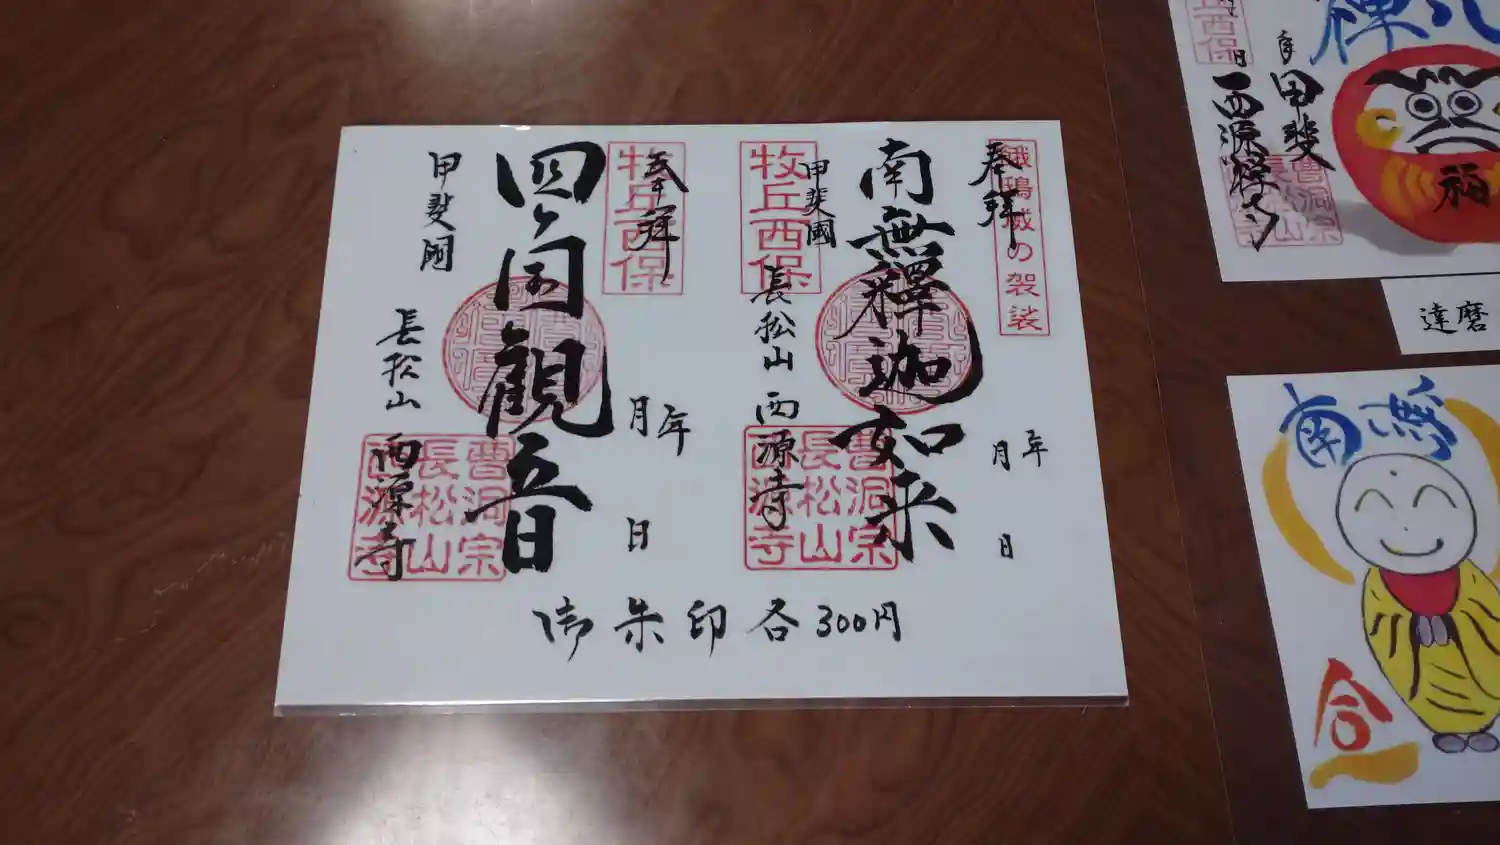 奉拝
鵝鴨威の袈裟
南無釋迦如来
年
月
日
牧丘西保
甲斐國
長松山 西源寺
曹洞宗
長松山
西源寺
奉拝
牧丘西保
年
月
日
四ヶ國觀音
甲斐國
長松山
西源寺
曹洞宗
長松山
西源寺
御朱印各300円
禅
福
年
日
甲斐
西源禅寺
曹洞宗
長松山
達磨
南無
合